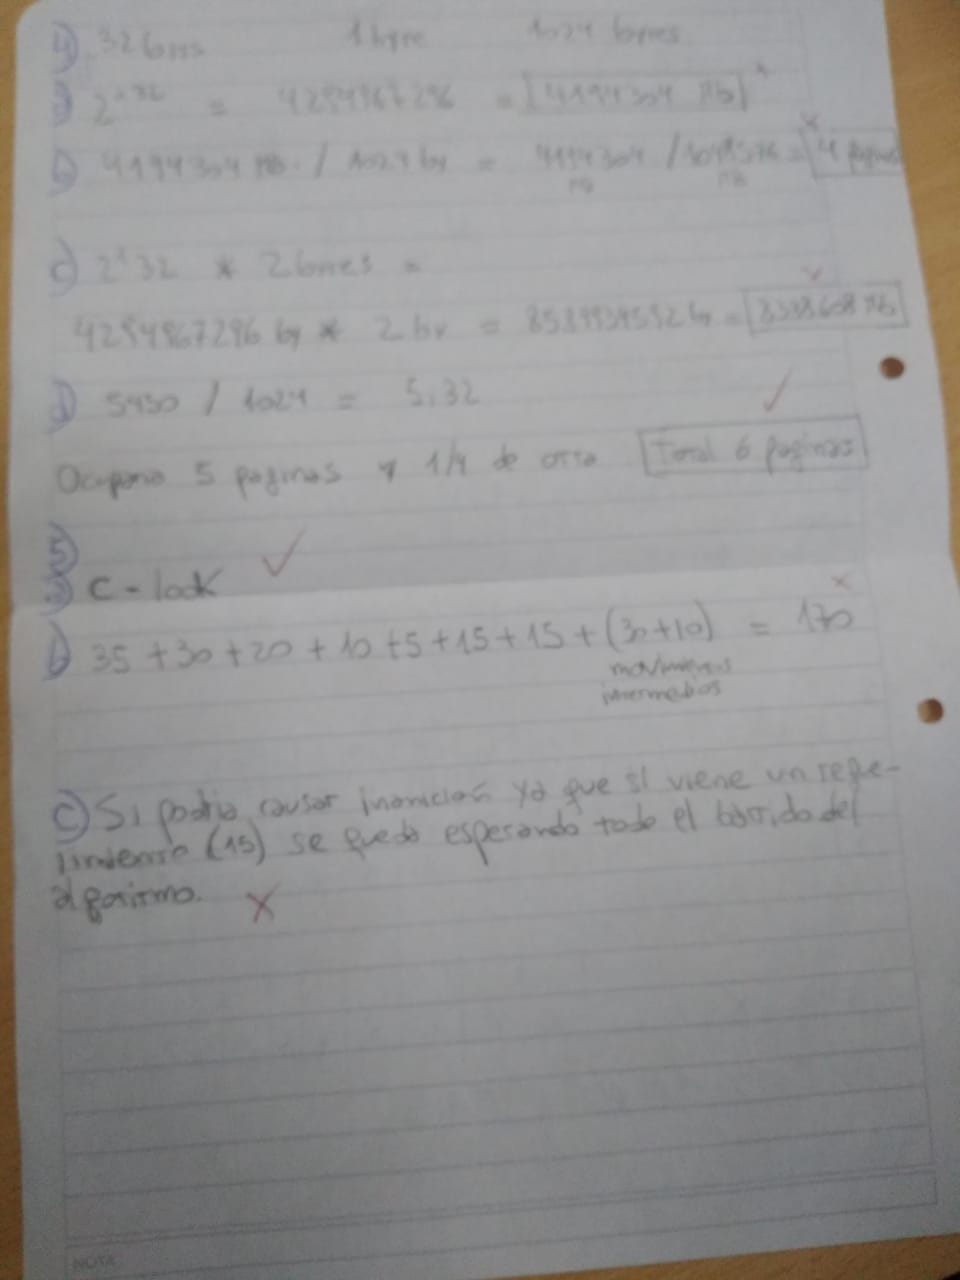 4) 32 bits 1 byte 1024 bytes
a) 2^32 = 4294967296 = 4194304 Mb x
b) 4194304 Mb / 1024 by = 4194304 / 1048576 = 4 paginas x
MB MB
c) 2^32 * 2 bytes =
4294967296 by * 2 by = 8589934592 by = 8388608 Mb
d) 5450 / 1024 = 5.32 ✓
Ocuparia 5 paginas y 1/4 de otra Total 6 paginas
5)
a) C-look ✓
b) 35 + 30 + 20 + 10 + 5 + 15 + 15 + (30+10) = 170 x
movimientos
intermedios
c) Si podria causar inanicion ya que si viene un reque-
rimiento (15) se queda esperando todo el barrido del
algoritmo. X
NOTA